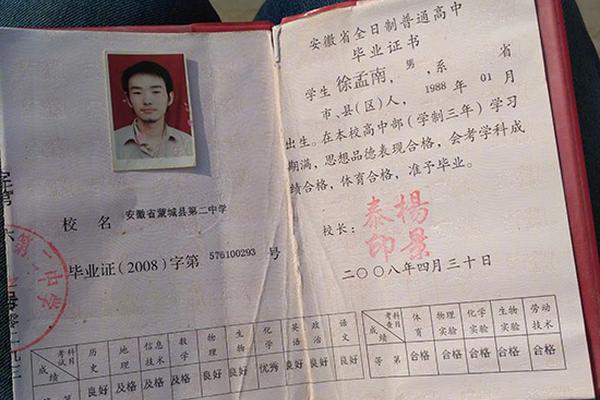 校名 安徽省蒙城县第二中学
毕业证(2008)字第 576100293 号
第二中学
考试科目 历史 地理 信息技术 数学 物理 生物 化学 英语 政治 语文
成绩 良好 及格 及格 及格 良好 良好 优秀 良好 良好 良好
安徽省全日制普通高中
毕业证书
学生 徐孟南，男，系 省
市、县(区)人，1988 年 01 月
出生。在本校高中部(学制三年)学习
期满，思想品德表现合格，会考学科成
绩合格，体育合格，准予毕业。
校长：
楊景
泰印
二〇〇八年四月三十日
考查科目 体育 物理实验 化学实验 生物实验 劳动技术
等第 合格 合格 合格 合格 合格